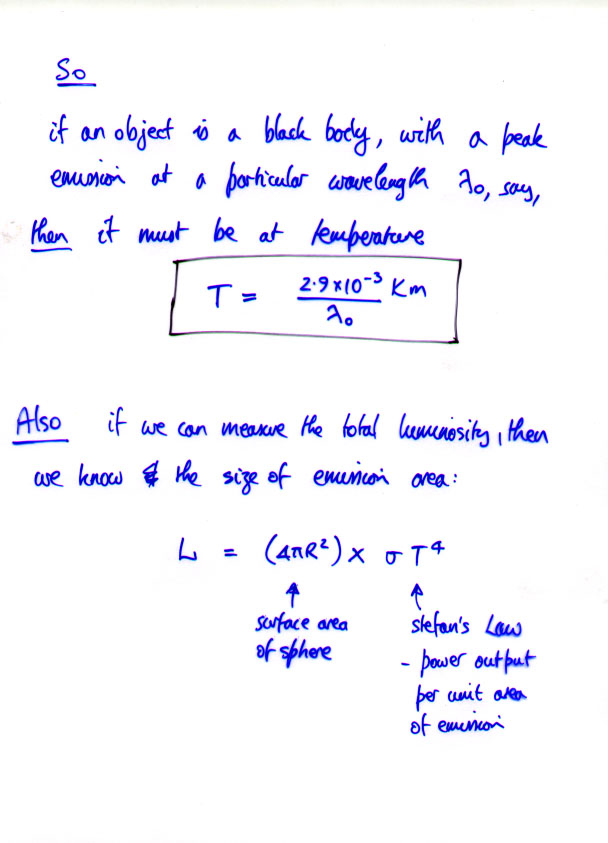 So
if an object is a black body, with a peak
emission at a particular wavelength λ₀, say,
then it must be at temperature
T = 2.9×10⁻³ / λ₀ Km
Also if we can measure the total luminosity, then
we know the size of emission area:
L = (4πR²) × σT⁴
surface area
of sphere
Stefan's Law
- power output
per unit area
of emission